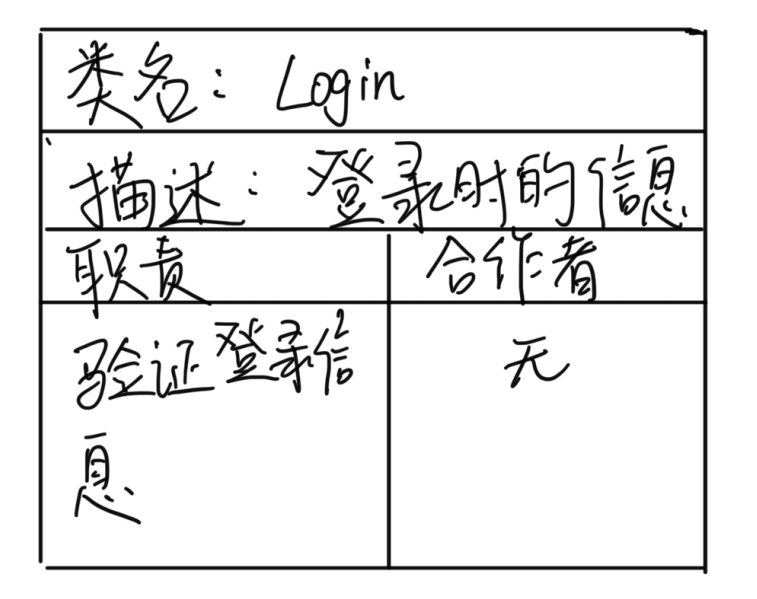 类名：Login
描述：登录时的信息
职责 合作者
验证登录信 无
息